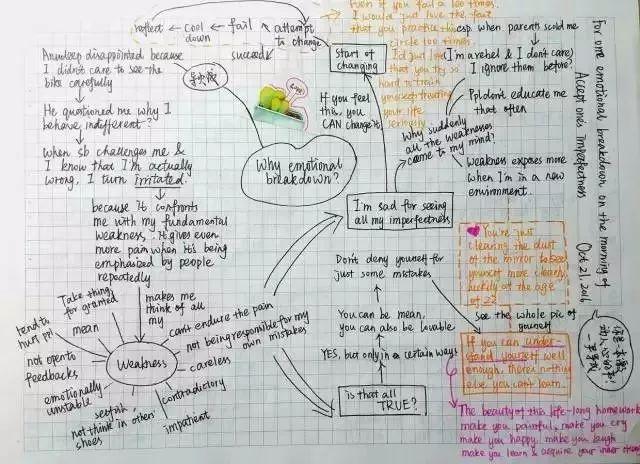 reflect ← cool down ← fail ← attempt to change
succeed
Even if you fail a 100 times.
I would just love the fact
that you practice this
circle 100 times.
I'd just love
that you try so
hard to train
yourself treating
your life
seriously.
esp. when parents scold me
(I'm a rebel & I don't care)
I ignore them before?
Ppl don't educate me
that often
Why suddenly
all the weaknesses
come to my mind?
Weakness exposes more
when I'm in a new
environment.
Start of
changing
If you feel
this, you
CAN change it
disappointed because
I didn't care to see the
bike carefully
He questioned me why I
behave indifferent?
When sb challenges me &
I know that I'm actually
wrong, I turn irritated.
because it confronts
me with my fundamental
weakness. It gives even
more pain when it's being
emphasized by people
repeatedly
makes me
think of all
my
Why emotional
breakdown?
I'm sad for seeing
all my imperfectness
Don't deny yourself for
just some mistakes
You can be mean,
you can also be lovable
YES, but only in certain ways
is that all
TRUE?
Weakness
Take things
for granted
tend to
hurt ppl
mean
not open to
feedbacks
emotionally
unstable
selfish,
not think in others'
shoes
impatient
contradictory
careless
not being responsible for my
own mistakes
can't endure the pain
You're just
clearing the dust
of the mirror to see
yourself more clearly
luckily at the age
of 22
see the whole pic of
yourself
If you can under-
stand yourself well
enough, there's nothing
else you can't learn.
The beauty of this life-long homework
make you painful, make you cry
make you happy, make you laugh
make you learn & acquire your inner strong
For one emotional breakdown on the morning of
Oct 21, 2016
Accept one's imperfectness